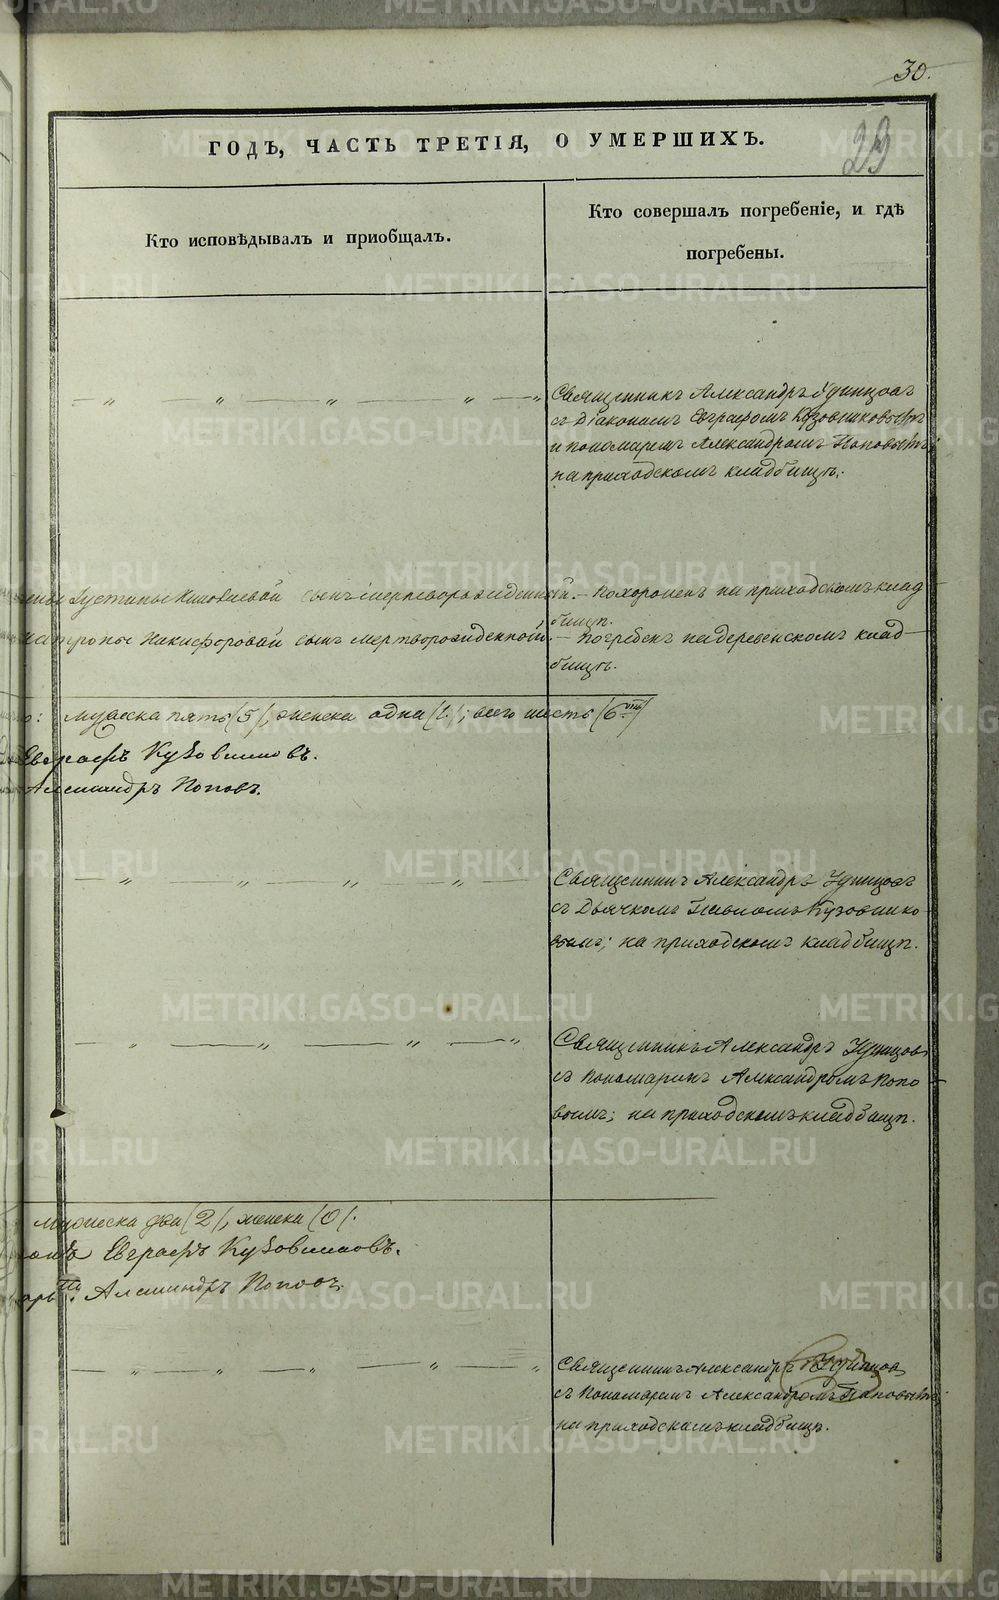 30.
29
ГОДЪ, ЧАСТЬ ТРЕТІЯ, О УМЕРШИХЪ.
Кто исповѣдывалъ и приобщалъ.
Кто совершалъ погребеніе, и гдѣ
погребены.
Священникъ Александръ Удинцовъ
съ Діакономъ Евграфомъ Кузовниковымъ
и пономаремъ Александромъ Поповымъ;
на приходскомъ кладбищѣ.
сынъ мертворожденный. — Похороненъ на приходскомъ клад
бищѣ.
Никифоровой сынъ мертворожденный. — Погребенъ на деревенскомъ клад-
бищѣ.
мужеска пять (5), женска одна (1.); всего шесть (6)
Евграфъ Кузовниковъ.
Александръ Поповъ.
Священникъ Александръ Удинцовъ
съ Дьячкомъ Кузовнико-
вымъ; на приходскомъ кладбищѣ.
Священникъ Александръ Удинцовъ
съ Пономаремъ Александромъ Попо-
вымъ; на приходскомъ кладбищѣ.
мужеска два (2), женска (0).
Евграфъ Кузовниковъ.
Александръ Поповъ.
Священникъ Александръ Удинцовъ
съ Пономаремъ Александромъ Поповымъ;
на приходскомъ кладбищѣ.
METRIKI.GASO-URAL.RU